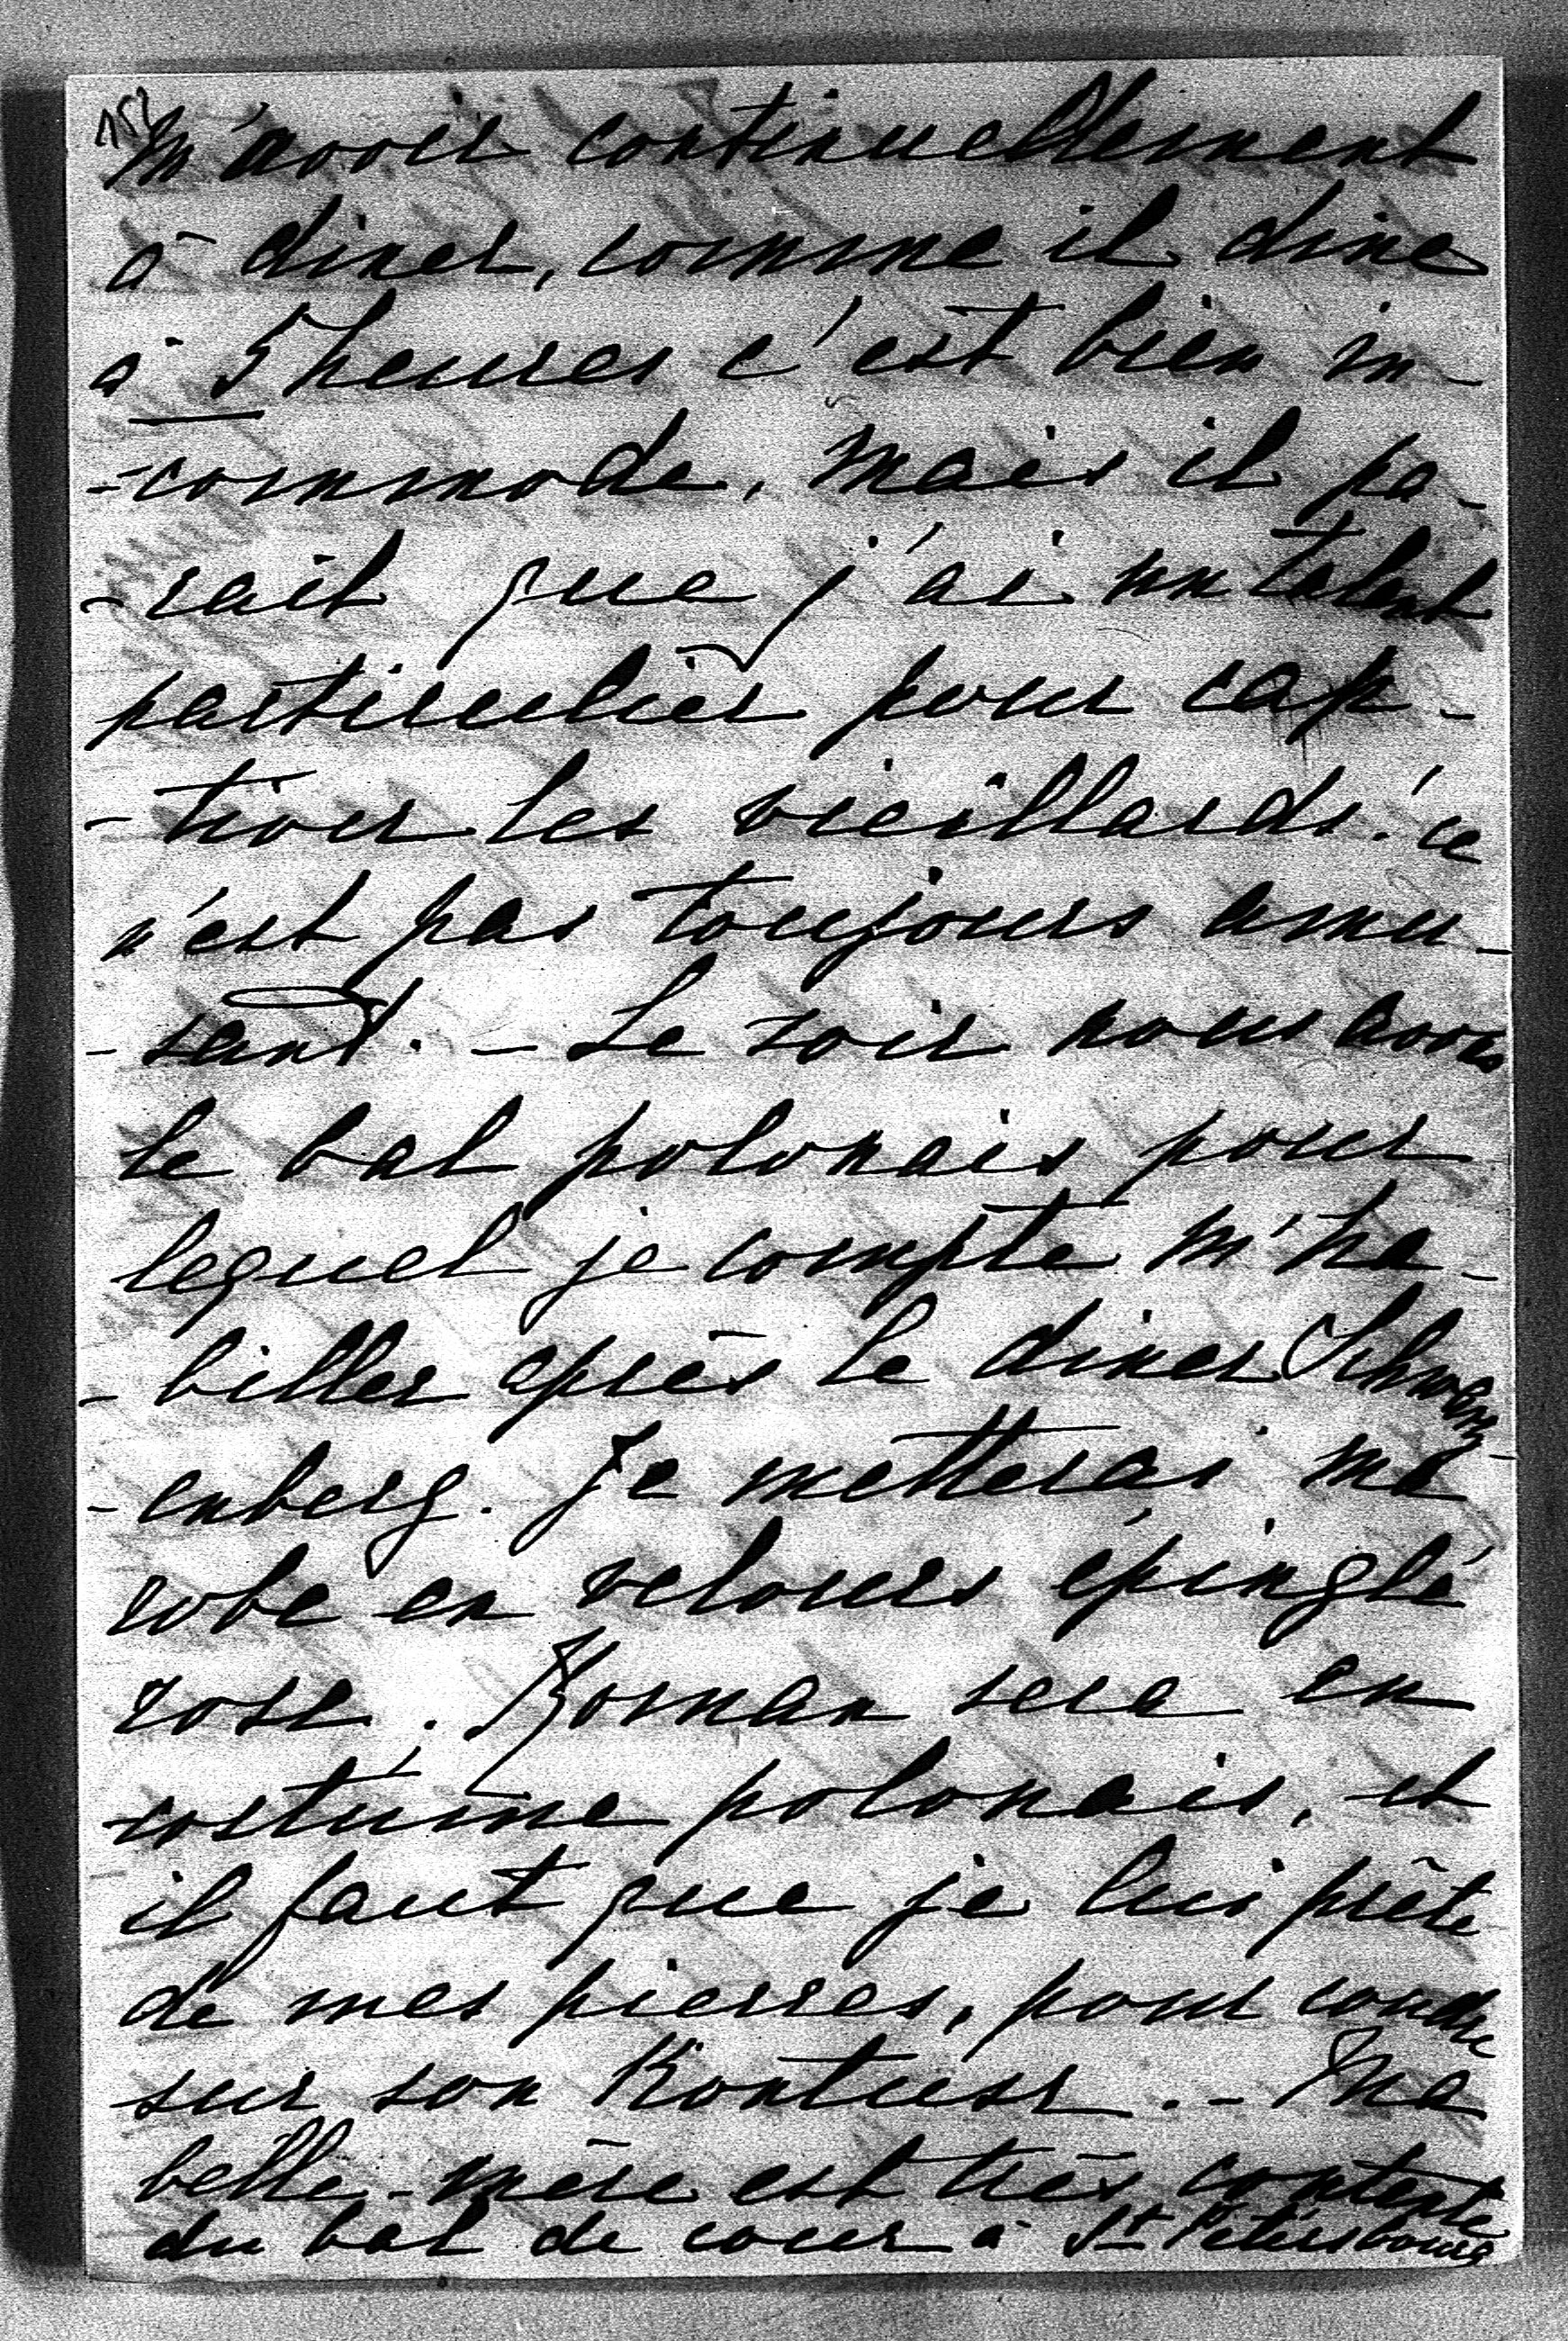 152
m'avoir continuellement
à diner, comme il dine
à 5 heures c'est bien in-
-commode, mais il pa-
-rait que j'ai un talent
particulier pour cap-
-tiver les vieillards! ce
n'est pas toujours amu-
-sant. - Le soir nous avons
le bal polonais pour
lequel je compte m'ha-
-biller après le diner Schwarz-
-enberg. Je metterai ma
robe en velours épinglé
rose. Roman sera en
costume polonais, et
il faut que je lui prête
de mes pierres, pour coudre
sur son Kontusz. - Ma
belle-mère est très contente
du bal de cour à St Pétersbourg